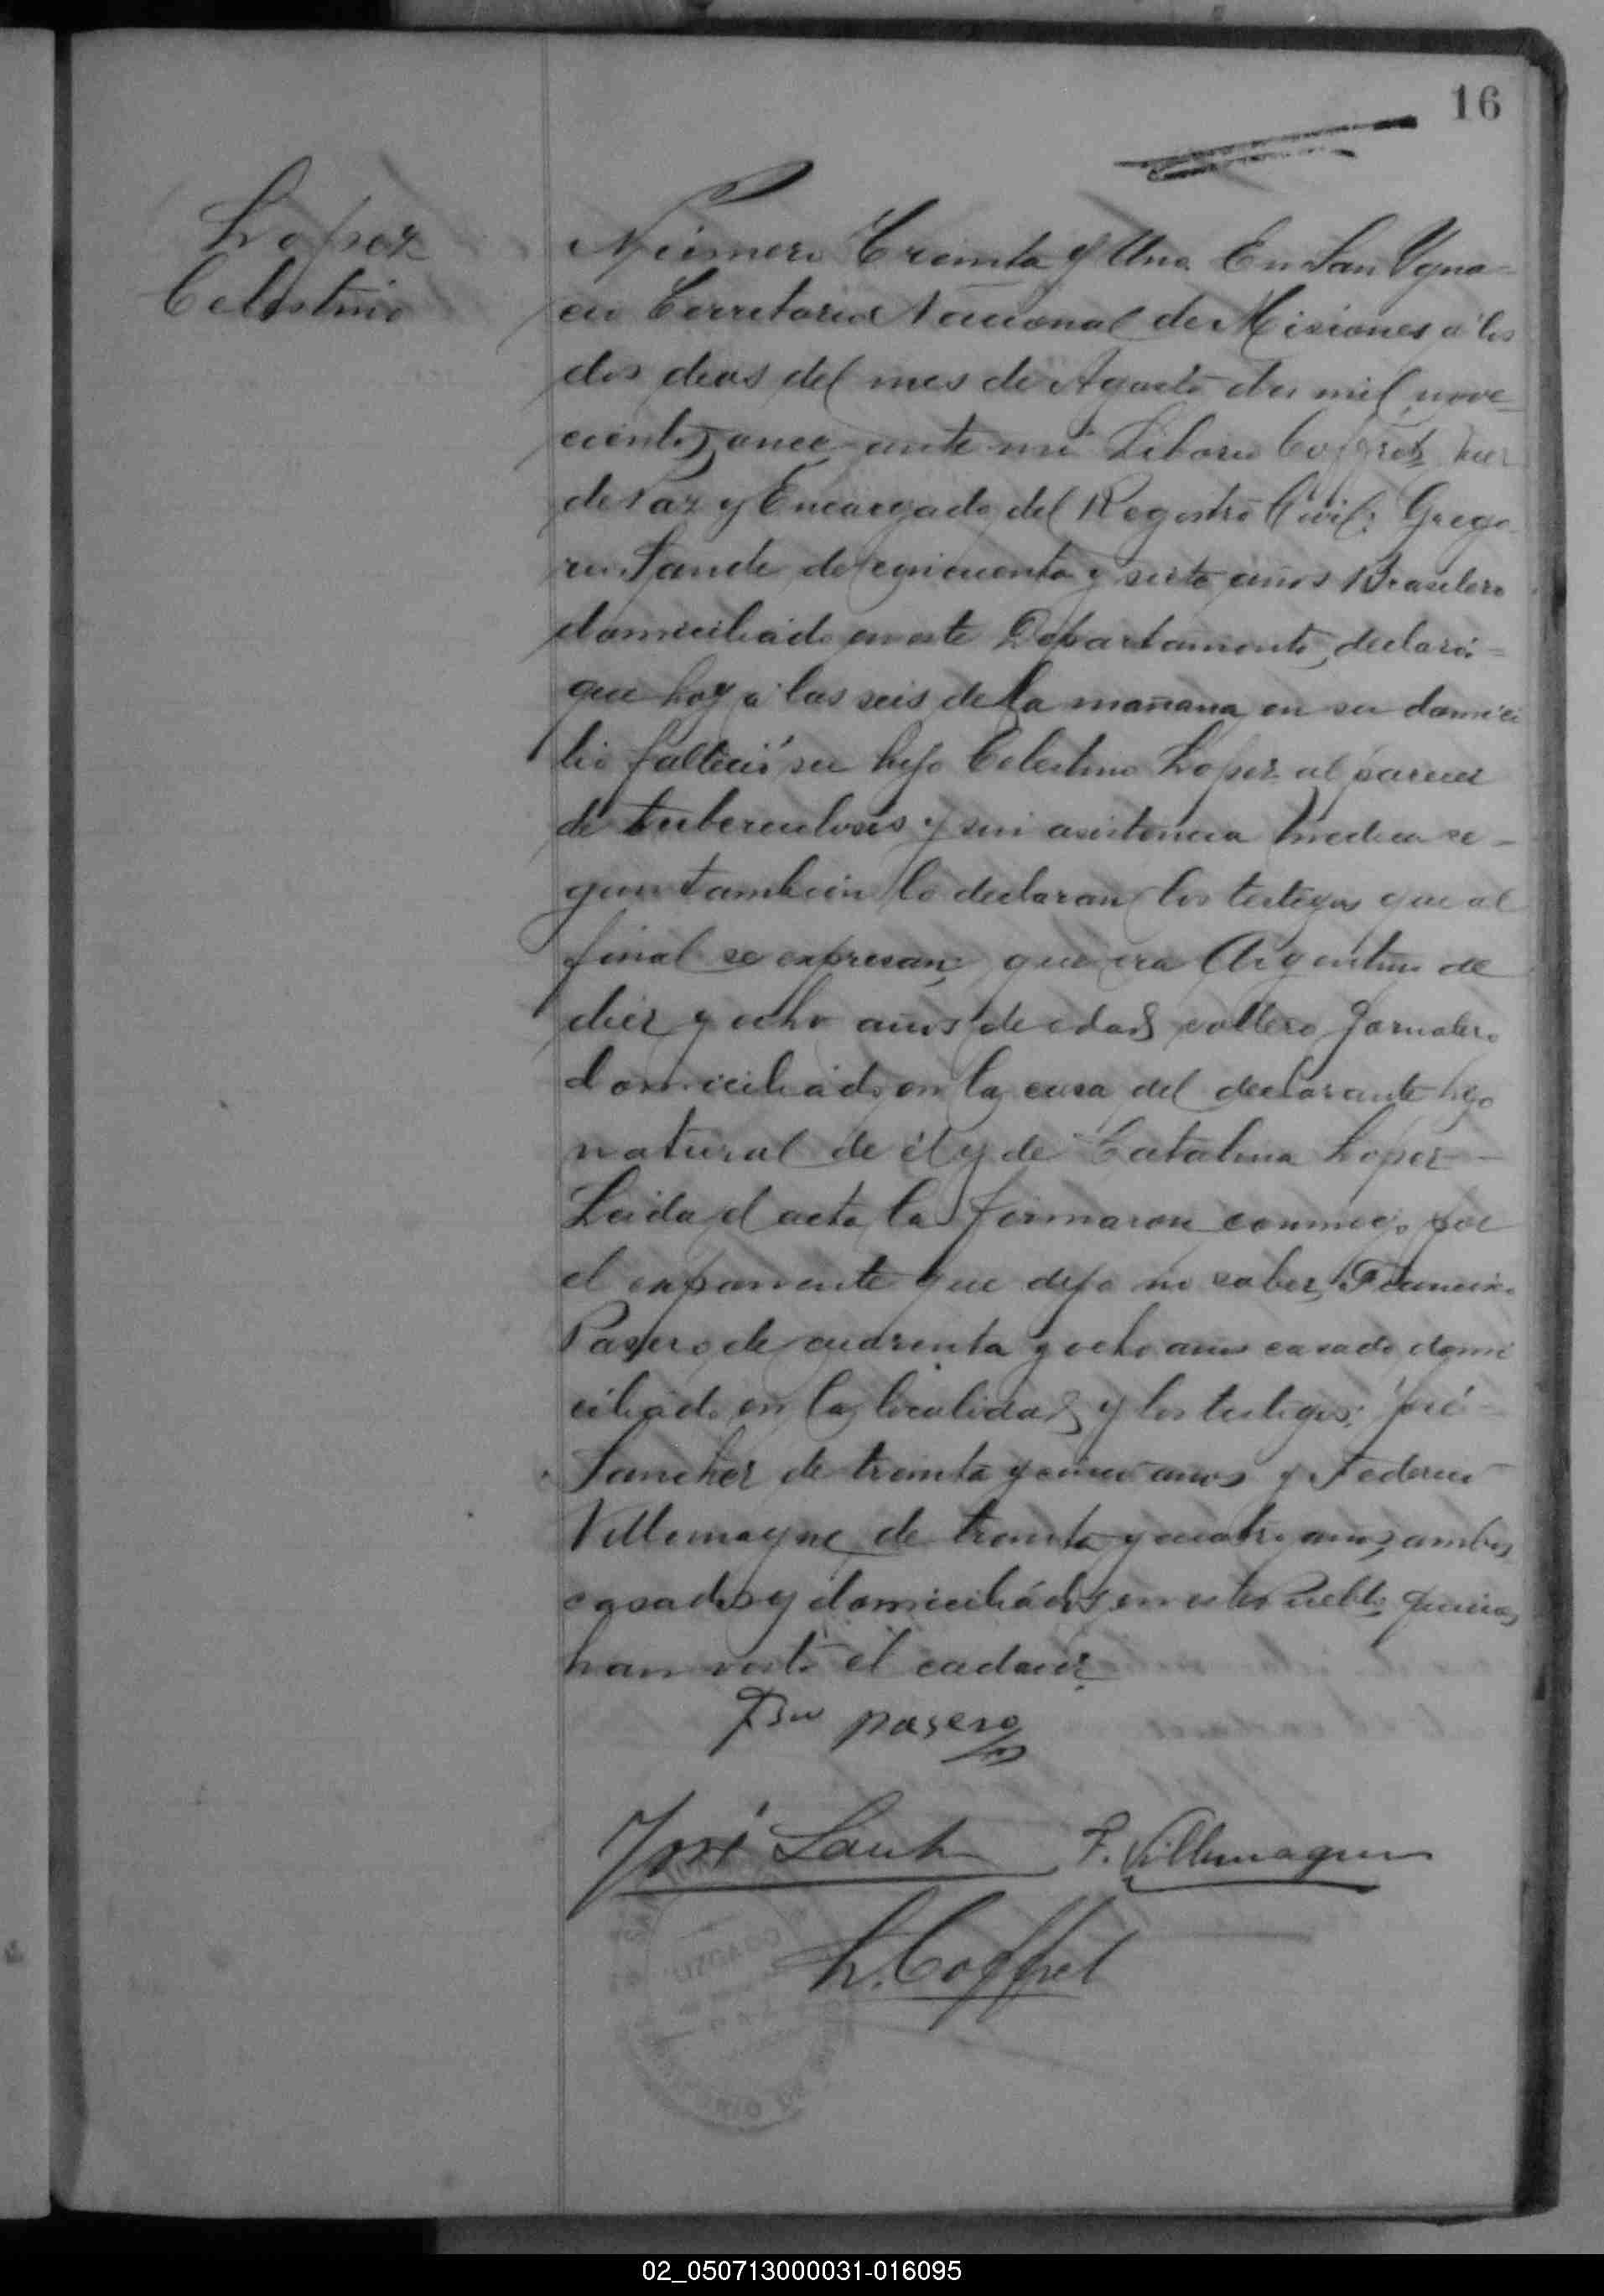 16
Lopez
Celestino
Número Treinta y Uno. En San Ygna-
cio Territorio Nacional de Misiones á los
dos dias del mes de Agosto de mil nove-
cientos once ante mi Liborio Coffret Juez
de Paz y Encargado del Registro Civil: Grego-
rio de cincuenta y siete años Brasilero
domiciliado en este Departamento, declaró-
que hoy á las seis de la mañana en su domici
lio fallició su hijo Celestino Lopez al parecer
de tuberculosis y sin asistencia medica se-
gun tambien lo declaran los testigos que al
final se expresan, que era Argentino de
diez y ocho años de edad soltero Jornalero
domiciliado en la casa del declarante hijo
natural de él y de Catalina Lopez-
Leida el acta la firmaron conmigo por
el exponente que dijo no saber, Francisco
Pasero de cuarenta y ocho años casado domi
ciliado en la localidad y los testigos: José-
Sanchez de treinta y cinco anos y Federico
Villemagne de treinta y cuatro anos, ambos
casados y domiciliádos en este Pueblo quienes
han visto el cadaver.
Fco pasero
José F. Villemagne
L. Coffret
02_050713000031-016095